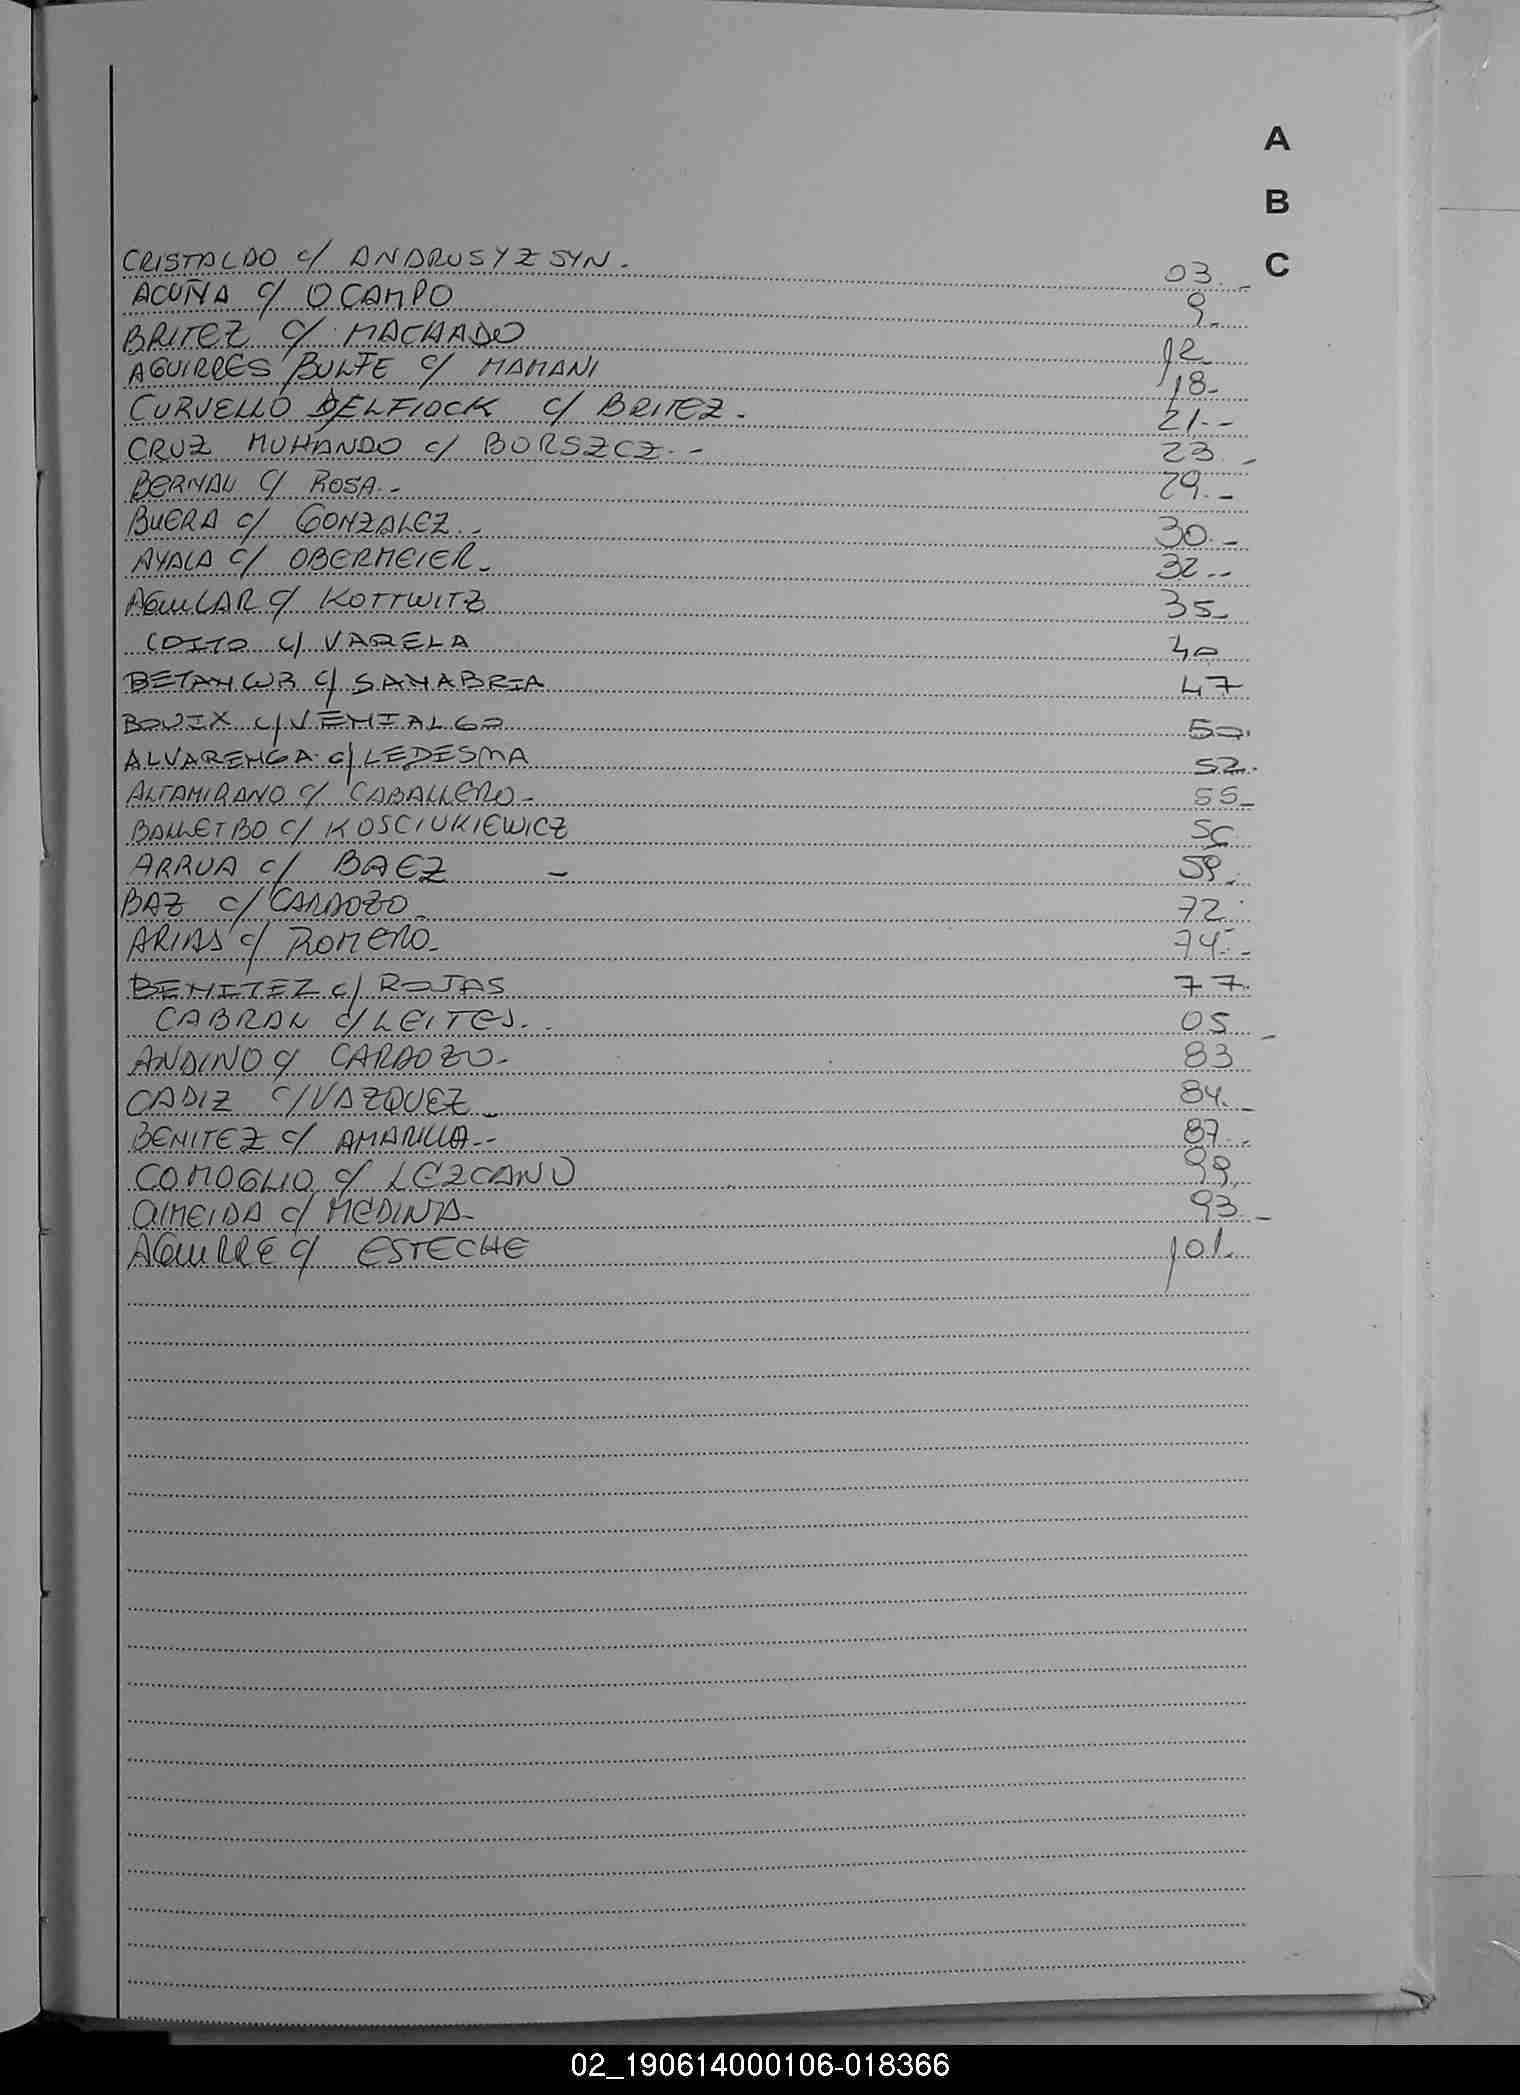 A
B
C
CRISTALDO c/ ANDRUSYZSYN. 03.-
ACUÑA c/ OCAMPO 9.
BRITEZ c/ MACHADO 12
AGUIRRES BULFE c/ MAMANI 18-
CURVELLO DELFIOCK c/ BRITEZ. 21.-
CRUZ MUHANDO c/ BORSZCZ.- 23.-
BERNAL c/ ROSA.- 29.-
BUERA c/ GONZALEZ.- 30.-
AYALA c/ OBERMEIER. 32.-
AGUILAR c/ KOTTWITZ 35-
c/ VARELA 40
BETANCUR c/ SANABRIA 47
c/ VENIALGO 50.
ALVARENGA c/ LEDESMA 52.
ALTAMIRANO c/ CABALLERO- 55-
BALLETBO c/ KOSCIUKIEWICZ
ARRUA c/ BAEZ - 59.
BAZ c/ CARDOZO 72.
ARIAS c/ ROMERO- 74.-
BENITEZ c/ ROJAS 77.
CABRAL c/ LEITES. 05-
ANDINO c/ CARDOZO- 83
CADIZ c/ VAZQUEZ- 84.-
BENITEZ c/ AMARILLA-- 87.-
COMOGLIO c/ LEZCANO 99.
ALMEIDA c/ MEDINA- 93.-
AGUIRRE c/ ESTECHE 101.
02_190614000106-018366